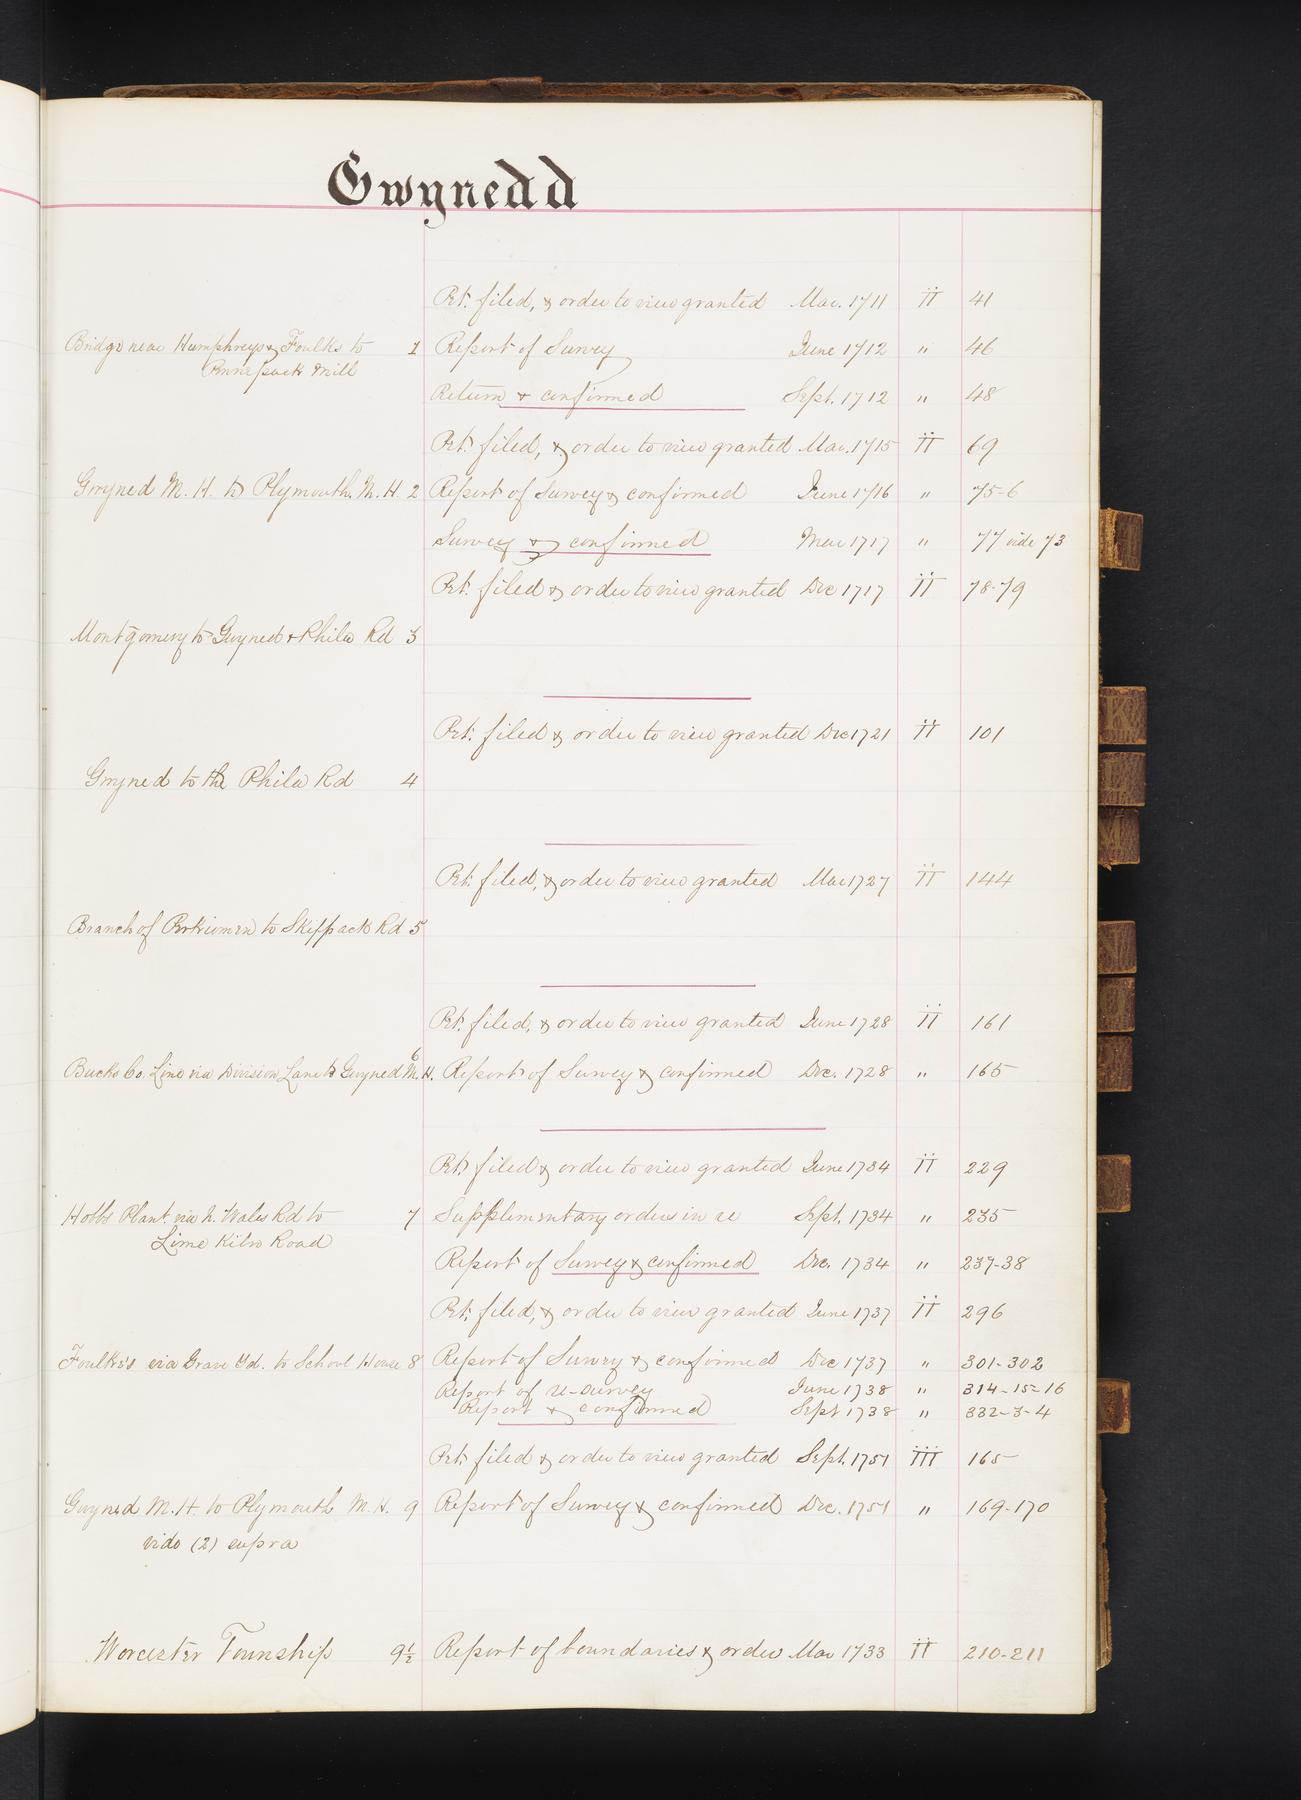 Gwynedd
Pet. filed, & order to view granted Mar. 1711 II 41
Bridge near Humphreys & Foulks to 1 Report of Survey June 1712 " 46
Pennepack Mill
Return & confirmed Sept. 1712 " 48
Pet. filed, & order to view granted Mar. 1715 II 69
Gwyned M. H. to Plymouth M. H. 2 Report of Survey & confirmed June 1716 " 75-6
Survey & confirmed Mar 1717 " 77 vide 73
Pet. filed & order to view granted Dec 1717 II 78-79
Montgomery to Gwyned & Phila Rd 3
Pet. filed & order to view granted Dec 1721 II 101
Gwyned to the Phila Rd 4
Pet. filed, & order to view granted Mar 1727 II 144
Branch of Perkiomen to Skippack Rd 5
Pet. filed, & order to view granted June 1728 II 161
Bucks Co. Line via Division Lane to Gwyned M. H. 6 Report of Survey & confirmed Dec. 1728 " 165
Pet. filed & order to view granted June 1734 II 229
Hobbs Plant. via N. Wales Rd to 7 Supplimentary orders in re Sept. 1734 " 235
Lime Kiln Road
Report of Survey & confirmed Dec. 1734 " 237-38
Pet. filed, & order to view granted June 1737 II 296
Foulke's via Grave Yd. to School House 8 Report of Survey & confirmed Dec 1737 " 301-302
Report of re-survey June 1738 " 314-15-16
Report & confirmed Sept 1738 " 332-3-4
Pet. filed & order to view granted Sept. 1751 III 165
Gwyned M. H. to Plymouth M. H. 9 Report of Survey & confirmed Dec. 1751 " 169-170
vide (2) supra
Worcester Township 9½ Report of boundaries & order Mar 1733 II 210-211
K
L
M
N